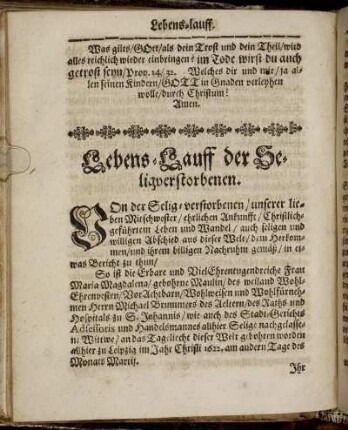 Lebens-lauff.
Was gilts/GOtt/als dein Trost und dein Theil/wird
alles reichlich wieder einbringen? im Tode wirst du auch
getrost seyn/Prov. 14/32. Welches dir und mir/ja al-
len seinen Kindern/GOTT in Gnaden verleyhen
wolle/durch Christum!
Amen.
Lebens-Lauff der Se-
ligverstorbenen.
VOn der Selig-verstorbenen/unserer lie-
ben Mitschwester/ehrlichen Ankunfft/Christlich-
geführtem Leben und Wandel/auch seligen und
willigen Abschied aus dieser Welt/dem Herkom-
men/und ihrem billigen Nachruhm gemäß/in et-
was Bericht zu thun/
So ist die Erbare und VielEhrentugendreiche Frau
Maria Magdalena/gebohrne Maulin/des weiland Wohl-
Ehrenvesten/VorAchtbarn/Wohlweisen und Wohlfürneh-
men Herrn Michael Brummers des Aeltern/des Raths und
Hospitals zu S. Johannis/wie auch des Stadt-Gerichts
Assessoris und Handelsmannes allhier Selige nachgelasse-
ne Wittwe/an das Tagelicht dieser Welt gebohren worden
allhier zu Leipzig im Jahr Christi 1622. am andern Tage des
Monats Martij.
Ihr